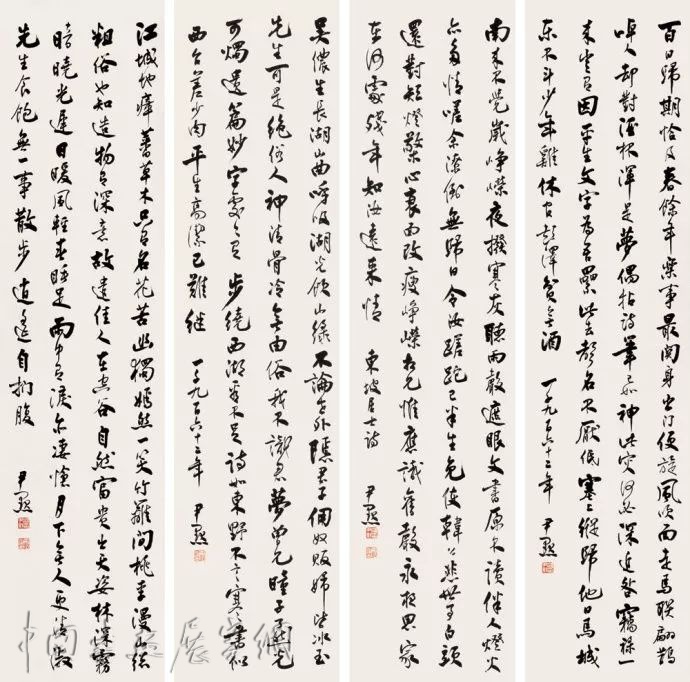 百日歸期恰及春餘年樂事最關身出門便旋風吹面走馬聯翩鵲
啅人却對酒杯渾是夢偶拈詩筆已如神此灾何必深追咎竊祿一
來豈有因平生文字為吾累此去聲名不厭低塞上縱歸他日馬城
東不鬥少年雞休官彭澤貧無酒 一千九百六十三年 尹默
南來不覺歲崢嶸夜撥寒灰聽雨聲遮眼文書原不讀伴人燈火
亦多情嗟余潦倒無歸日令汝蹉跎已半生免使韓公悲世事白頭
還對短燈檠心衰面改瘦崢嶸相見惟應識舊聲永夜思家
在何處殘年知汝遠來情 東坡居士詩
吳儂生長湖山曲呼吸湖光飲山綠不論世外隱君子傭奴販婦皆冰玉
先生可是絕俗人神清骨冷無由俗我不識君夢曾見瞳子瞭然光
可燭遺篇妙字處處有步繞西湖看不足詩如東野不言寒書似
西臺差少肉平生高潔已難繼 一千九百六十三年 尹默
江城地瘴蕃草木只有名花苦幽獨嫣然一笑竹籬間桃李漫山總
粗俗也知造物有深意故遣佳人在空谷自然富貴出天姿林深霧
暗曉光遲日暖風輕春睡足雨中有淚亦凄愴月下無人更清淑
先生食飽無一事散步逍遙自捫腹 尹默